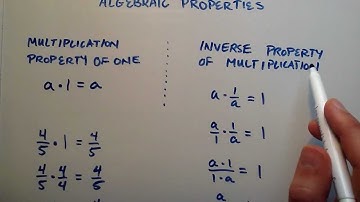 ALGEBRAIC PROPERTIES
MULTIPLICATION
PROPERTY OF ONE
a · 1 = a
4/5 · 1 = 4/5
4/5 · 4/4 = 4/5
INVERSE PROPERTY
OF MULTIPLICATION
a · 1/a = 1
a/1 · 1/a = 1
a · 1/1 · a = 1
a = 1